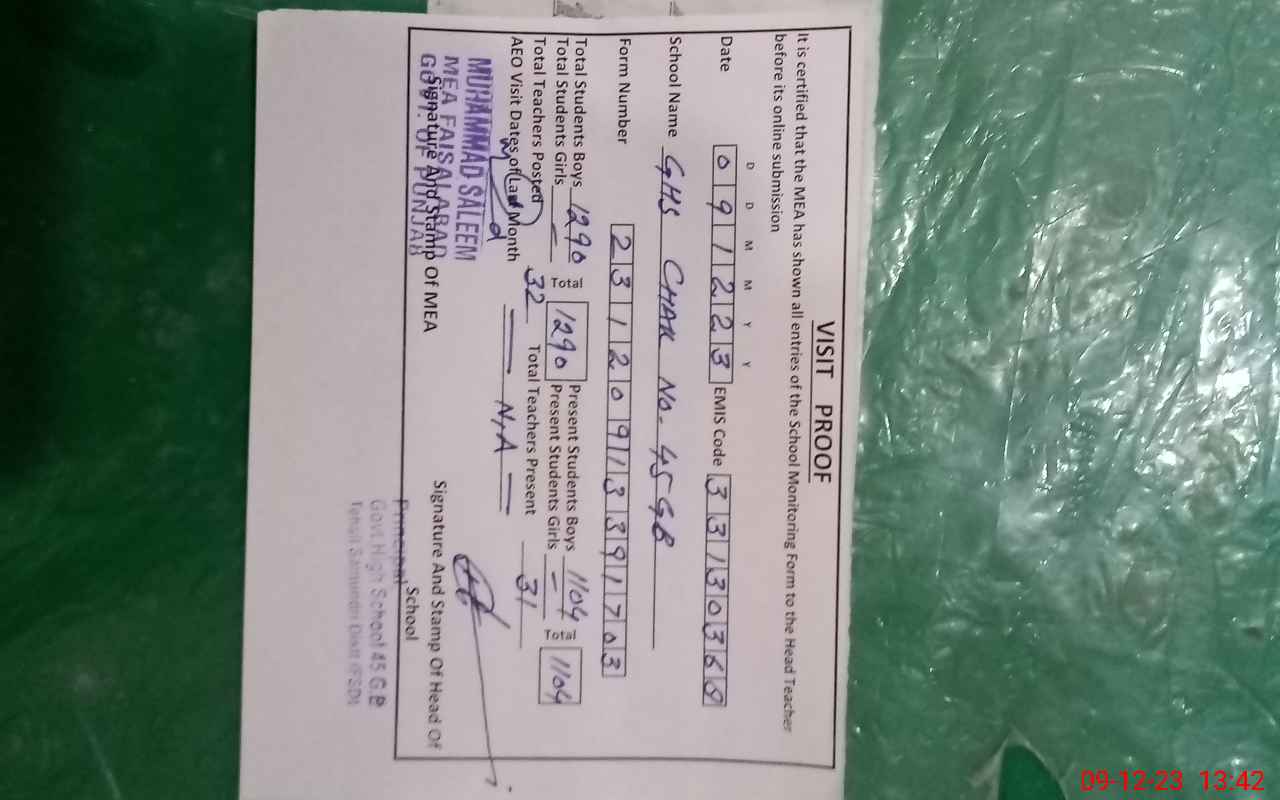 VISIT PROOF
It is certified that the MEA has shown all entries of the School Monitoring Form to the Head Teacher
before its online submission
D D M M Y Y
Date 091223 EMIS Code 33130360
School Name GHS CHAK No. 45 GB
Form Number 23120913391703
Total Students Boys 1290 Total 1290 Present Students Boys 1104 Total 1104
Total Students Girls - Present Students Girls -
Total Teachers Posted 32 Total Teachers Present 31
AEO Visit Dates of Last Month — N,A —
MUHAMMAD SALEEM
MEA FAISALABAD
GOVT. OF PUNJAB
Signature And Stamp Of MEA
Signature And Stamp Of Head Of
School
Principal
Govt High School 45 G.B
Tehsil Samundri Distt (FSD)
09-12-23 13:42